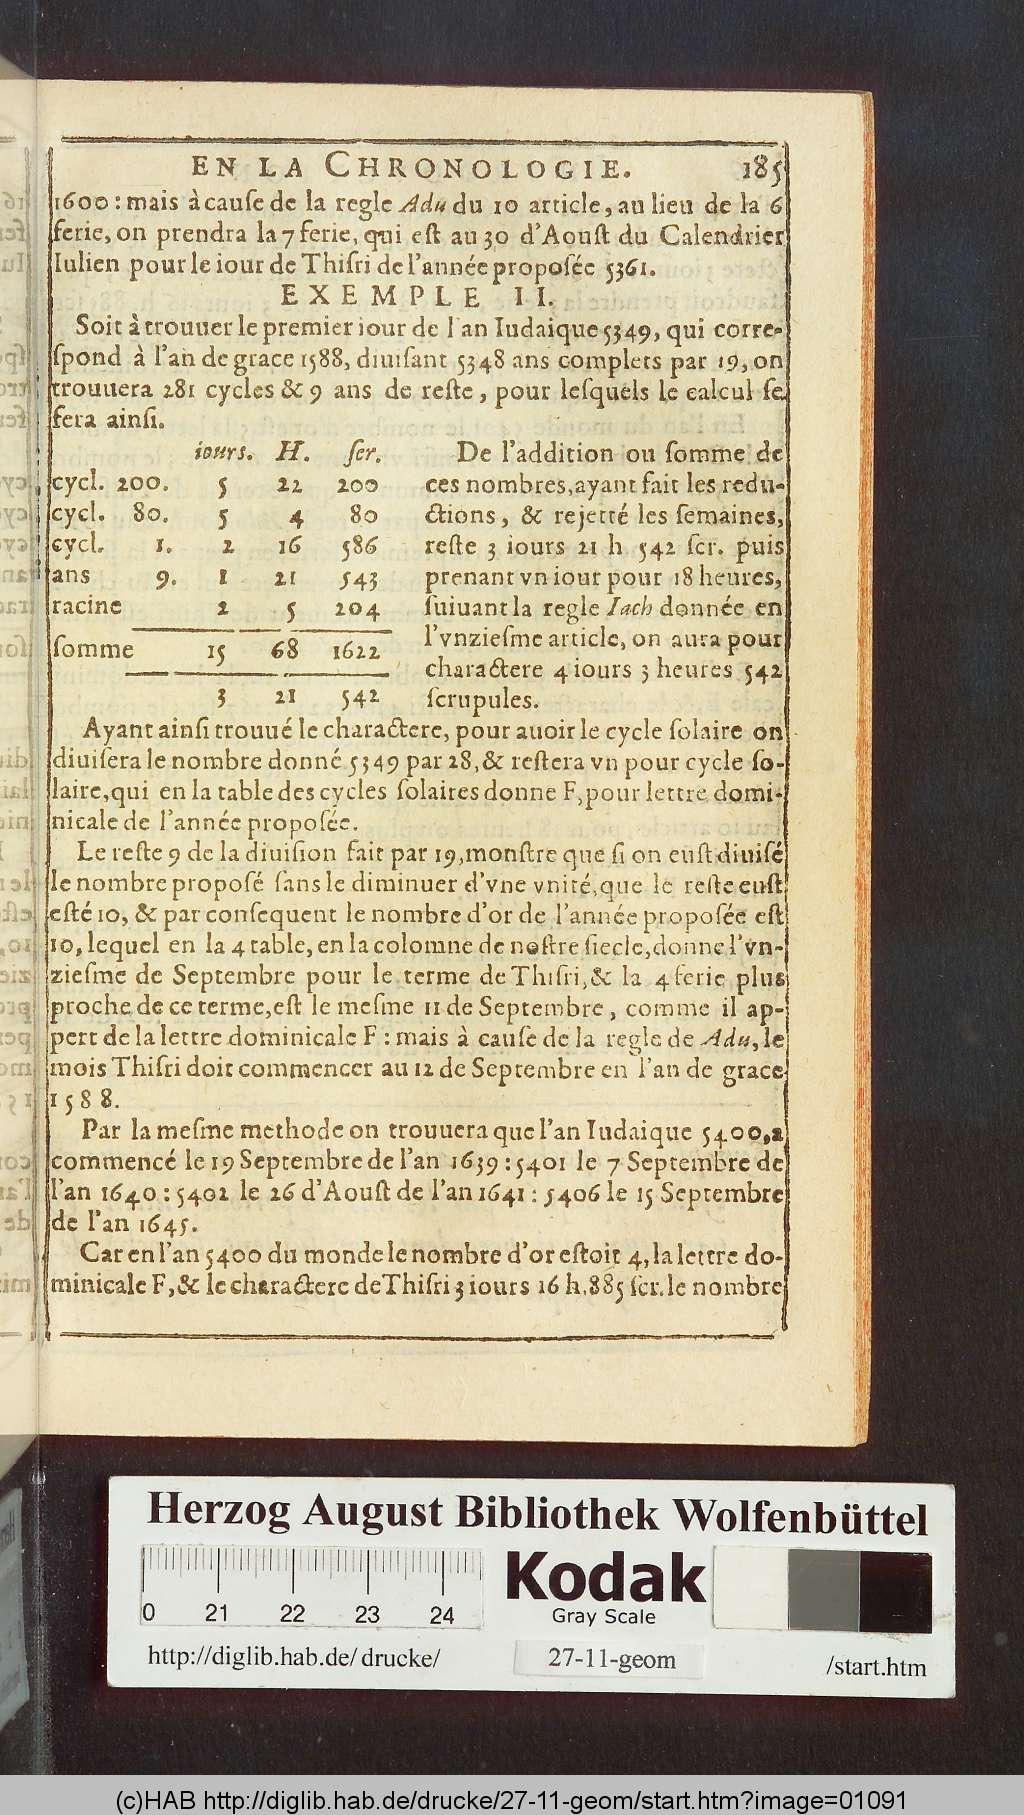 EN LA CHRONOLOGIE. 185
1600 : mais à cauſe de la regle Adu du 10 article, au lieu de la 6
ferie, on prendra la 7 ferie, qui eſt au 30 d'Aouſt du Calendrier
Iulien pour le iour de Thiſri de l'année propoſée 5361.
EXEMPLE II.
Soit à trouuer le premier iour de l'an Iudaique 5349, qui corre-
ſpond à l'an de grace 1588, diuiſant 5348 ans complets par 19, on
trouuera 281 cycles & 9 ans de reſte, pour leſquels le calcul ſe
fera ainſi.
iours. H. ſcr.
cycl. 200. 5 22 200
cycl. 80. 5 4 80
cycl. 1. 2 16 586
ans 9. 1 21 543
racine 2 5 204
ſomme 15 68 1622
3 21 542
De l'addition ou ſomme de
ces nombres, ayant fait les redu-
ctions, & rejetté les ſemaines,
reſte 3 iours 21 h 542 ſcr. puis
prenant vn iour pour 18 heures,
ſuiuant la regle Iach donnée en
l'vnzieſme article, on aura pour
charactere 4 iours 3 heures 542
ſcrupules.
Ayant ainſi trouué le charactere, pour auoir le cycle ſolaire on
diuiſera le nombre donné 5349 par 28, & reſtera vn pour cycle ſo-
laire, qui en la table des cycles ſolaires donne F, pour lettre domi-
nicale de l'année propoſée.
Le reſte 9 de la diuiſion fait par 19, monſtre que ſi on euſt diuiſé
le nombre propoſé ſans le diminuer d'vne vnité, que le reſte euſt
eſté 10, & par conſequent le nombre d'or de l'année propoſée eſt
10, lequel en la 4 table, en la colomne de noſtre ſiecle, donne l'vn-
zieſme de Septembre pour le terme de Thiſri, & la 4 ferie plus
proche de ce terme, eſt le meſme 11 de Septembre, comme il ap-
pert de la lettre dominicale F : mais à cauſe de la regle de Adu, le
mois Thiſri doit commencer au 12 de Septembre en l'an de grace
1588.
Par la meſme methode on trouuera que l'an Iudaique 5400, a
commencé le 19 Septembre de l'an 1639 : 5401 le 7 Septembre de
l'an 1640 : 5402 le 26 d'Aouſt de l'an 1641 : 5406 le 15 Septembre
de l'an 1645.
Car en l'an 5400 du monde le nombre d'or eſtoit 4, la lettre do-
minicale F, & le charactere de Thiſri 3 iours 16 h. 885 ſcr. le nombre
Herzog August Bibliothek Wolfenbüttel
Kodak
Gray Scale
0 21 22 23 24
http://diglib.hab.de/drucke/ 27-11-geom /start.htm
(c)HAB http://diglib.hab.de/drucke/27-11-geom/start.htm?image=01091